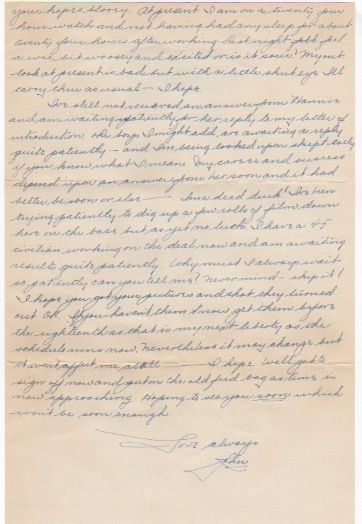 your hopes stoory. At present I am on a twenty four
hour watch and not having had any sleep for about
twenty four hours after working last night I feel
a wee bit woosey and excited or is it sour? My out-
look at present is bad but with a little shut eye I'll
carry thru as usual — I hope.
I've still not received an answer from
and am waiting patiently for her reply to my letter of
introduction. The boys I might add, are awaiting a reply
quite patiently — and I'm being looked upon skeptically
if you know what I mean. My career and success
depend upon an answer from her soon and it had
better be soon or else — I'm a dead duck! I've been
trying patiently to dig up a few rolls of film down
here on the base but as yet no luck. I have a 4f
civilian, working on the deal now and am awaiting
results quite patiently. Why must I always wait
so patiently can you tell me? Nevermind - skip it!
I hope you got your pictures and that they turned
out OK. If you haven't them I now get them before
the eighteenth as that is my next liberty, as the
schedule runs now. Nevertheless it may change but
it won't affect me at all — I hope. Well got to
sign off now and get on the old fied bag as time is
now approaching. Hoping to see you soon which
won't be soon enough.
Love always
John